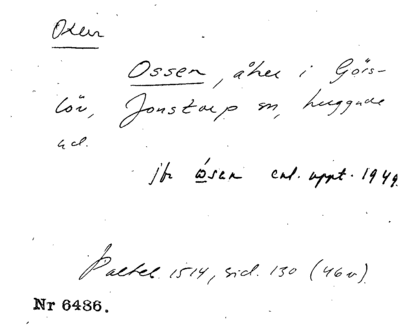 Oxen
Ossen, åker i Görs-
löv, Jonstorp sn, Luggude
hd.
jfr ósen enl. uppt. 1949.
Pallel 1514, sid. 130 (46v)
Nr 6486.